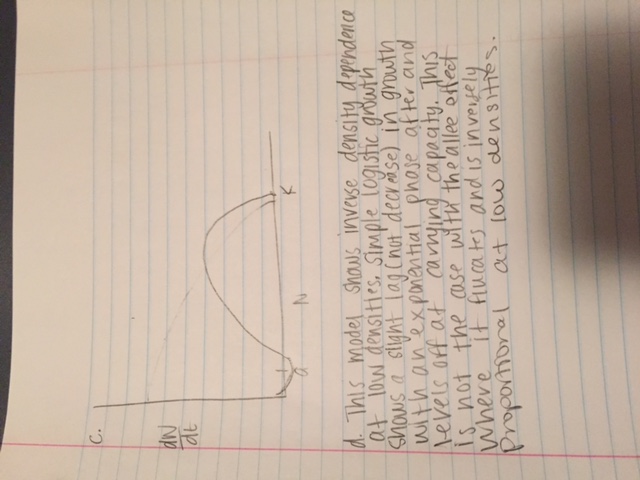 c.
dN
dt
a
N
K
d. This model shows inverse density dependence
at low densities. simple logistic growth
shows a slight lag (not decrease) in growth
with an exponential phase after and
levels off at carrying capacity. This
is not the case with the allee effect
where it flucates and is inversely
proportional at low densities.